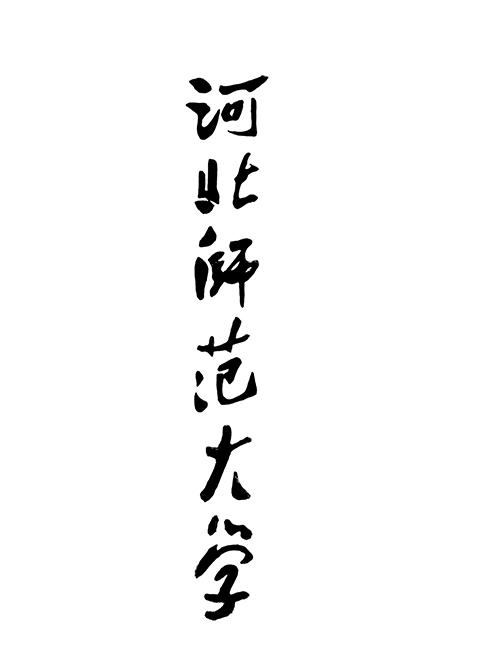 河北师范大学